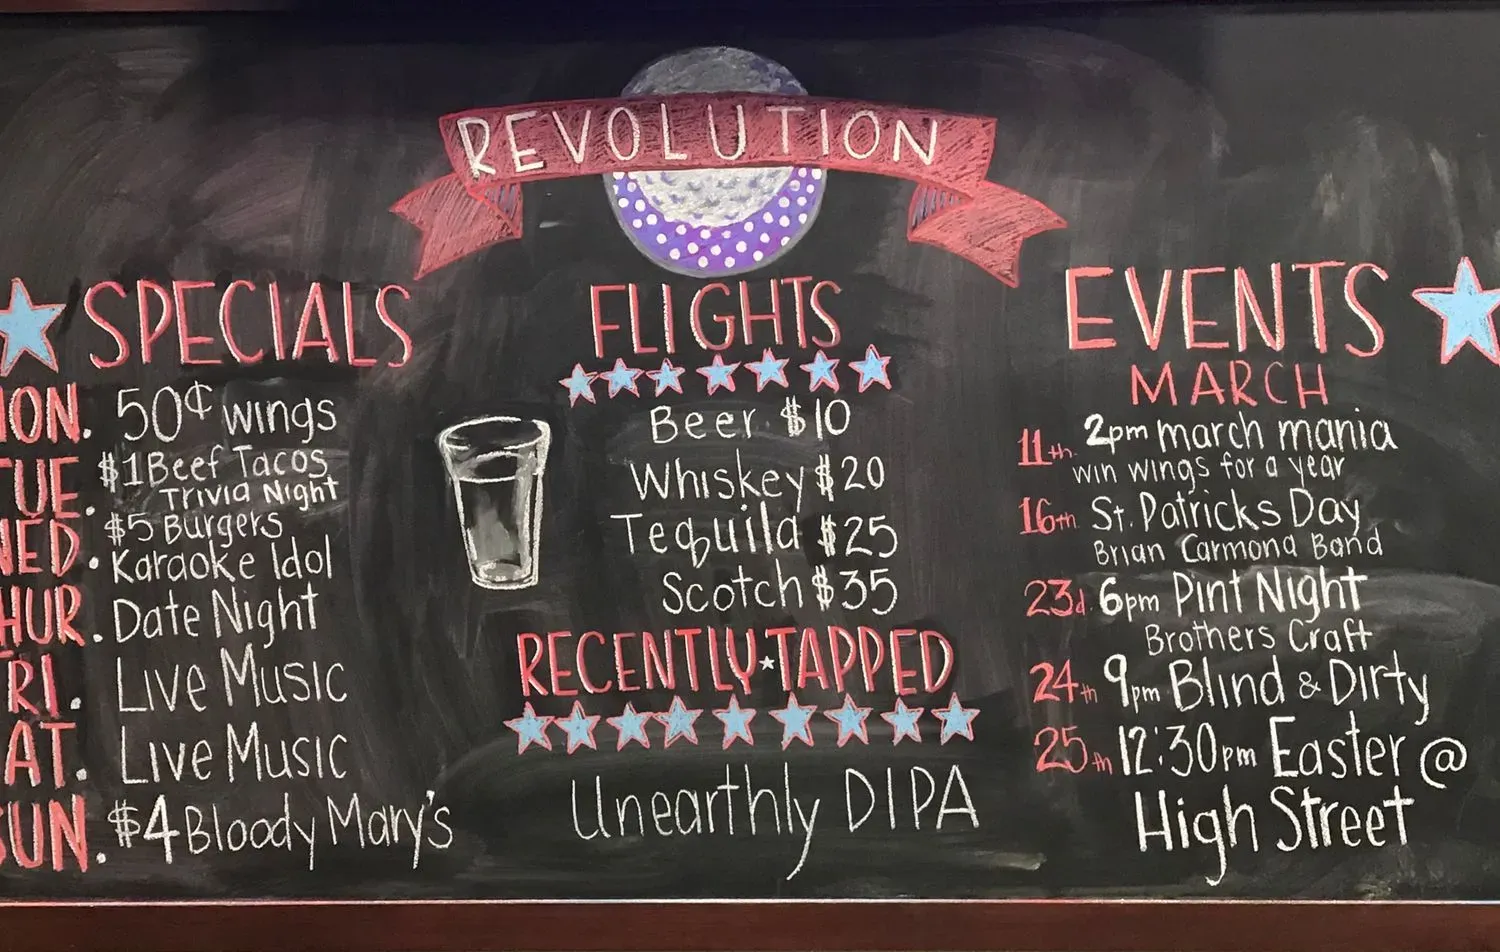 REVOLUTION
SPECIALS
ON. 50¢ wings
TUE. $1 Beef Tacos
Trivia Night
WED. $5 Burgers
Karaoke Idol
HUR. Date Night
FRI. Live Music
AT. Live Music
SUN. $4 Bloody Mary's
FLIGHTS
Beer $10
Whiskey $20
Tequila $25
Scotch $35
RECENTLY TAPPED
Unearthly DIPA
EVENTS
MARCH
11th 2pm march mania
win wings for a year
16th St. Patricks Day
Brian Carmona Band
23d 6pm Pint Night
Brothers Craft
24th 9pm Blind & Dirty
25th 12:30pm Easter @
High Street